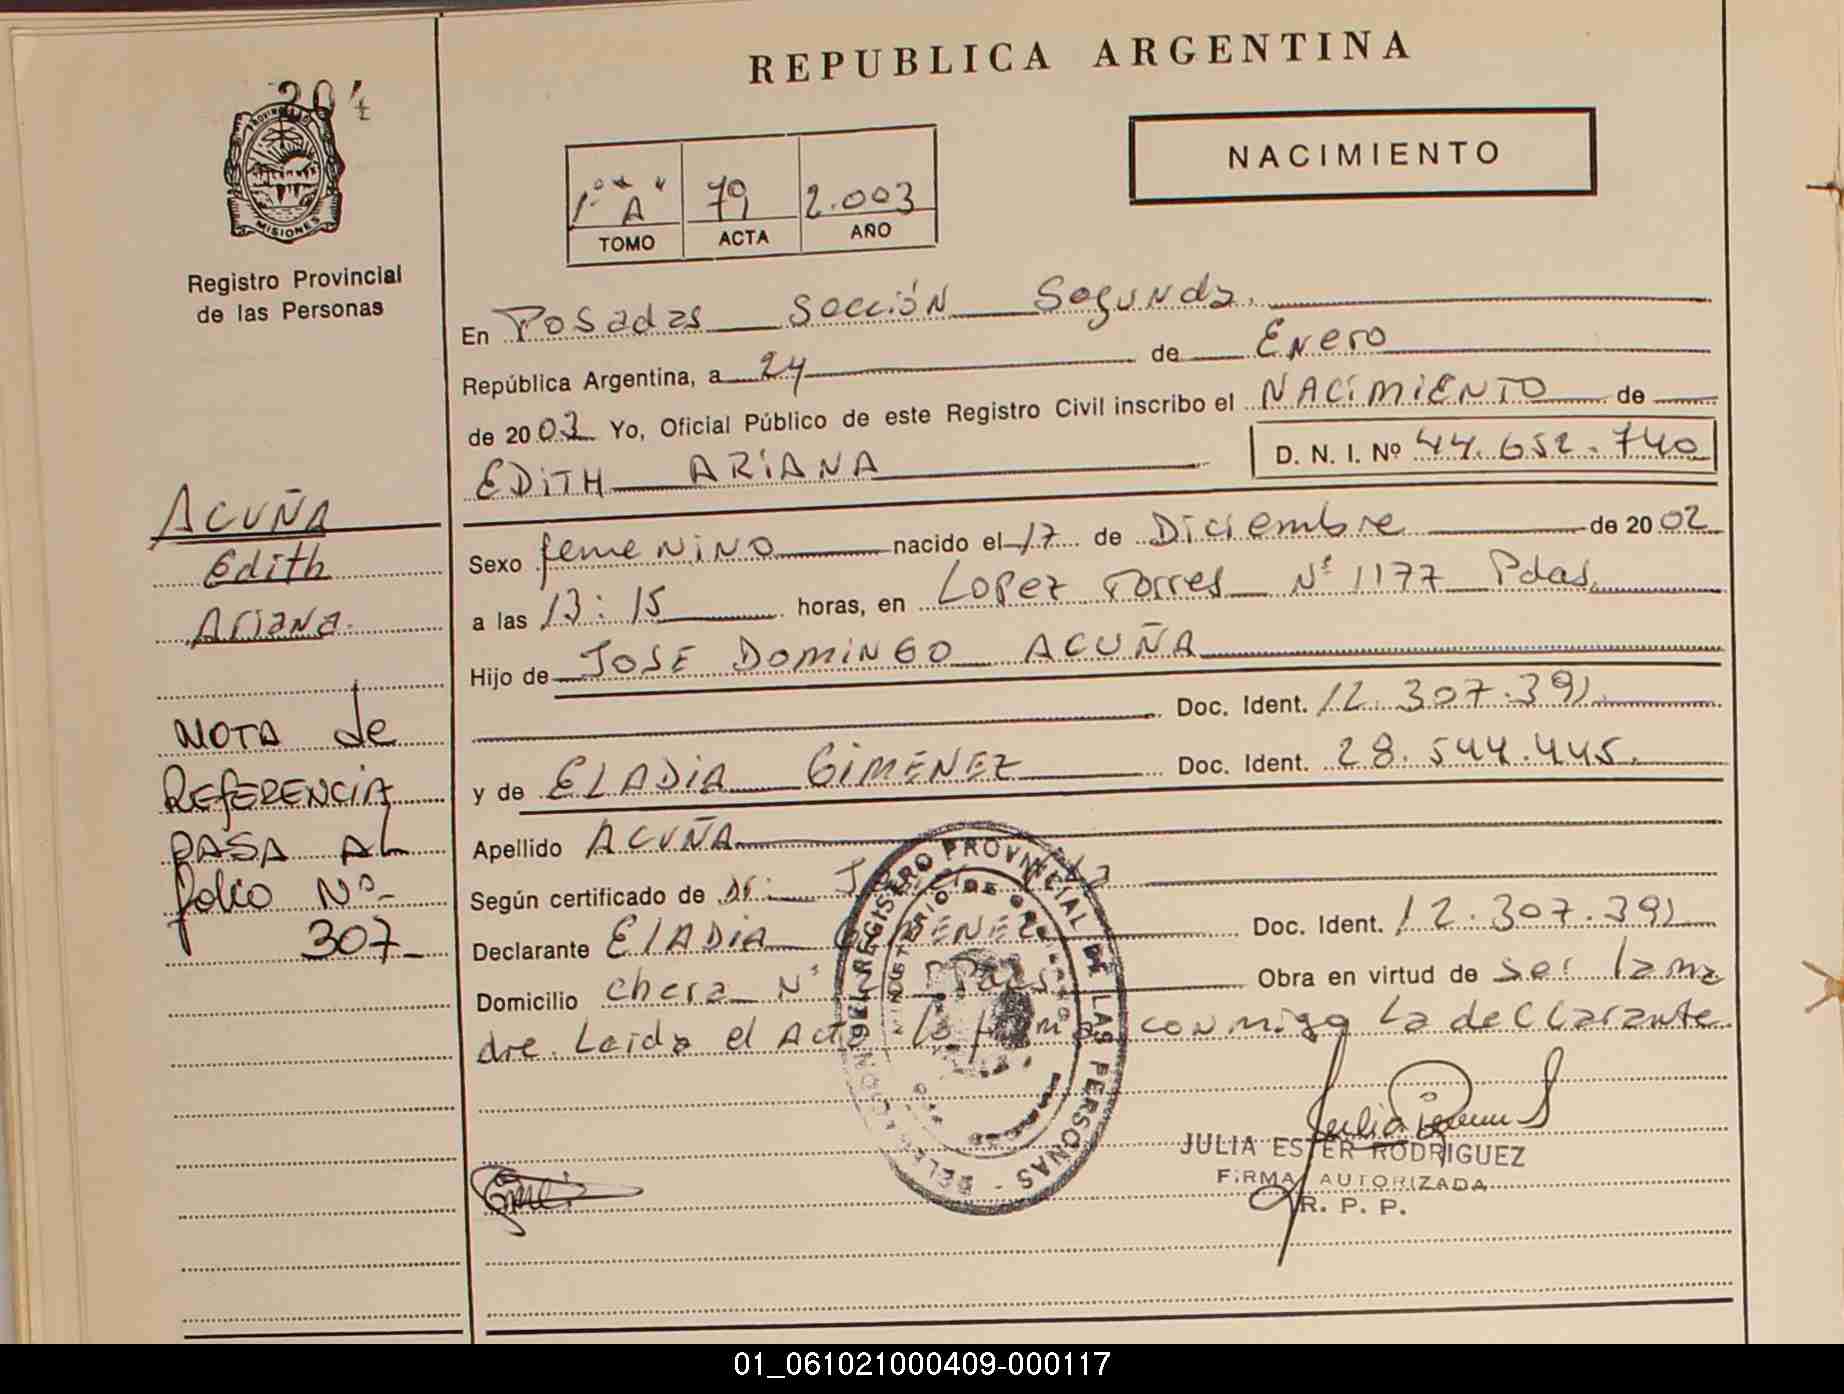 204
PROVINCIA DE
MISIONES
Registro Provincial
de las Personas
ACUÑA
Edith
Ariana.
NOTA de
REFERENCIA
PASA AL
folio Nº-
307-
REPUBLICA ARGENTINA
NACIMIENTO
1º "A" 79 2.003
TOMO ACTA AÑO
En Posadas Sección Segunda.
República Argentina, a 24 de Enero
de 2003 Yo, Oficial Público de este Registro Civil inscribo el NACIMIENTO de
EDITH ARIANA D. N. I. Nº 44.652.740
Sexo femenino nacido el 17 de Diciembre de 2002
a las 13:15 horas, en Lopez Torres Nº 1177 Pdas.
Hijo de JOSE DOMINGO ACUÑA
Doc. Ident. 12.307.391.
y de ELADIA GIMENEZ Doc. Ident. 28.544.445.
Apellido ACUÑA
Según certificado de Dr.
Declarante ELADIA GIMENEZ Doc. Ident. 12.307.391
Domicilio Chera Nº Pdas Obra en virtud de ser la ma
dre. Leida el Acta la firma conmigo La declarante.
REGISTRO PROVINCIAL DE LAS PERSONAS
JULIA ESTER RODRIGUEZ
FIRMA AUTORIZADA
R. P. P.
01_061021000409-000117